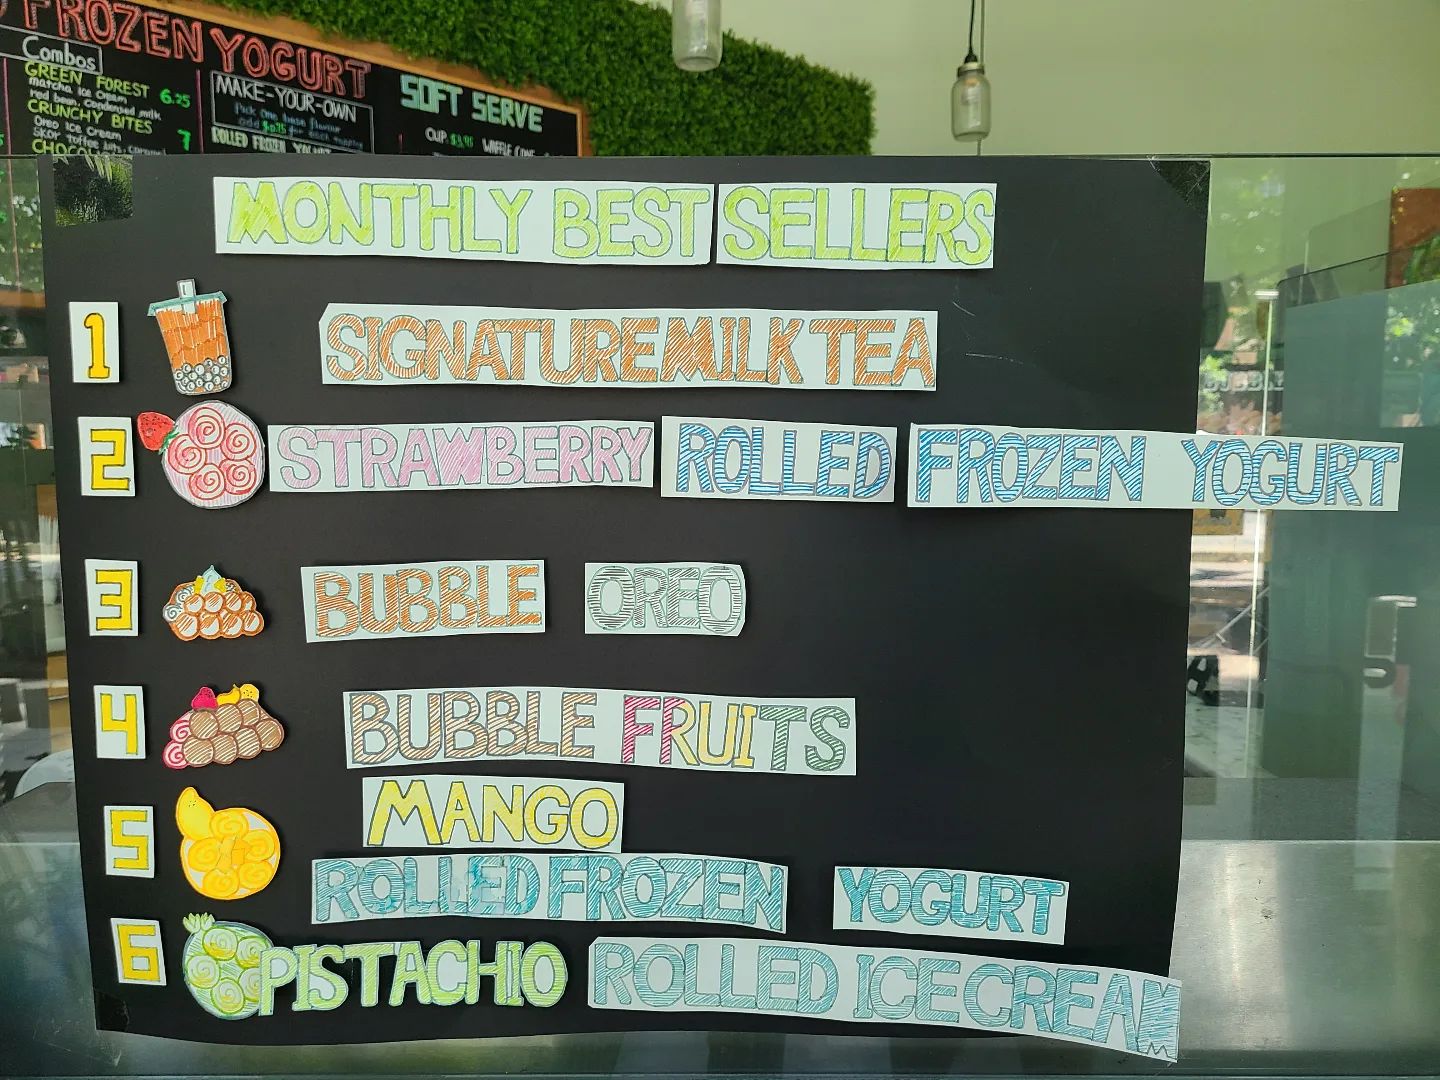 FROZEN YOGURT
Combos
GREEN FOREST 6.25
matcha ice cream
red bean, condensed milk
CRUNCHY BITES 7
Oreo ice cream
MAKE-YOUR-OWN
Pick one base flavour
ROLLED FROZEN
SOFT SERVE
CUP
MONTHLY BEST SELLERS
1 SIGNATURE MILK TEA
2 STRAWBERRY ROLLED FROZEN YOGURT
3 BUBBLE OREO
4 BUBBLE FRUITS
5 MANGO
ROLLED FROZEN YOGURT
6 PISTACHIO ROLLED ICE CREAM